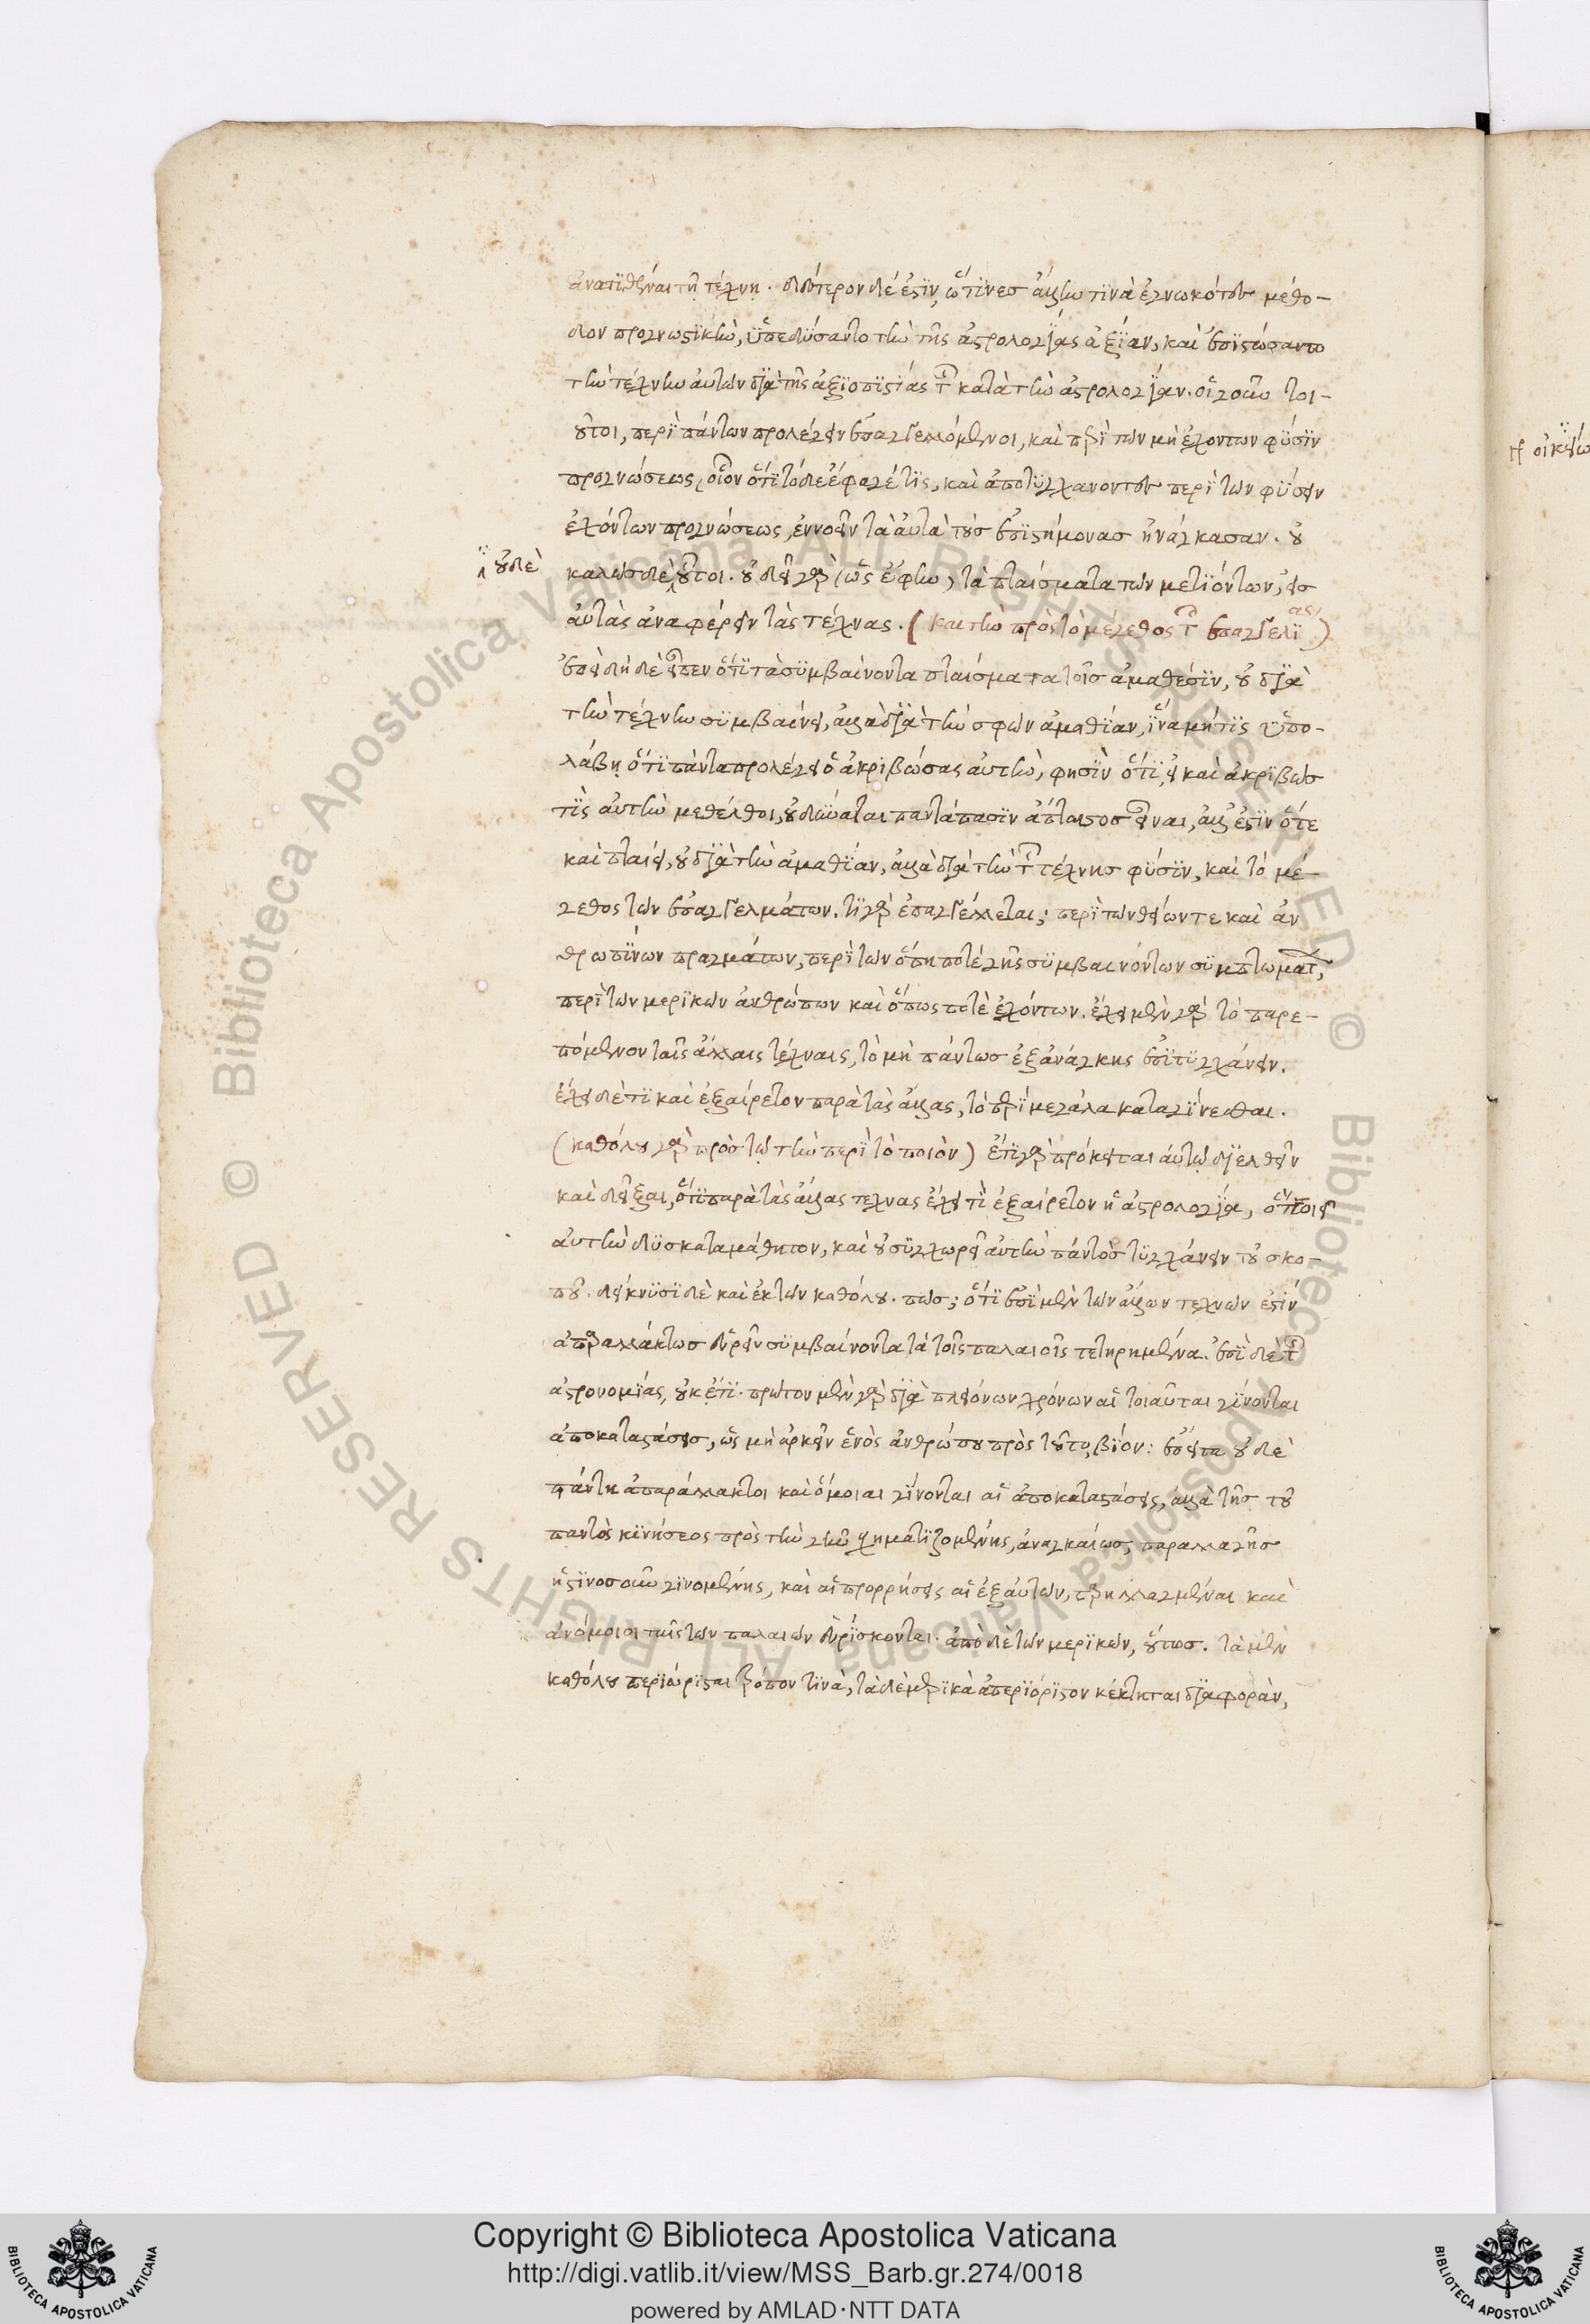 ἀνατιθέναι τῇ τέχνῃ. δεύτερον δέ ἐστιν, ὥς τινες ἄλλην τινὰ ἐγνωκότες μέθο-
δον προγνωστικὴν, ὑπεδύσαντο τὴν τῆς ἀστρολογίας ἀξίαν, καὶ ἐπιστώσαντο
τὴν τέχνην αὐτῶν διὰ τῆς ἀξιοπιστίας τῆς κατὰ τὴν ἀστρολογίαν. οἱ γοῦν τοι-
οῦτοι, περὶ πάντων προλέγειν ἐπαγγελλόμενοι, καὶ περὶ τῶν μὴ ἐχόντων φύσιν
προγνώσεως, οἷον ὅτι τόδε ἔφαγέ τις, καὶ ἀποτυγχάνοντες περὶ τῶν φύσιν
ἐχόντων προγνώσεως, ἐννοεῖν τὰ αὐτὰ τοὺς ἐπιστήμονας ἠνάγκασαν. οὐ
οὐδὲ
καλῶς δὲ οὗτοι. οὐ δεῖ γὰρ (ὡς ἔφην) τὰ πταίσματα τῶν μετιόντων, εἰς
αὐτὰς ἀναφέρειν τὰς τέχνας. (καὶ τὴν πρὸς τὸ μέγεθος τῆς ἐπαγγελίας)
ἐπειδὴ δὲ εἶπεν ὅτι τὰ συμβαίνοντα πταίσματα τοῖς ἀμαθέσιν, οὐ διὰ
τὴν τέχνην συμβαίνει, ἀλλὰ διὰ τὴν σφῶν ἀμαθίαν, ἵνα μή τις ὑπο-
λάβῃ ὅτι πάντα προλέγει ὁ ἀκριβώσας αὐτὴν, φησὶν ὅτι, εἰ καὶ ἀκριβῶς
τὶς αὐτὴν μετέλθοι, οὐ δύναται παντάπασιν ἄπταιστος εἶναι, ἀλλ' ἔστιν ὅτε
καὶ πταίει, οὐ διὰ τὴν ἀμαθίαν, ἀλλὰ διὰ τὴν τῆς τέχνης φύσιν, καὶ τὸ μέ-
γεθος τῶν ἐπαγγελμάτων. τί γὰρ ἐπαγγέλλεται; περὶ τῶν θείων τε καὶ ἀν
θρωπίνων πραγμάτων, περὶ τῶν ὅπῃ ποτὲ γῆς συμβαινόντων συμπτωμάτων,
περὶ τῶν μερικῶν ἀνθρώπων καὶ ὅπως ποτὲ ἐχόντων. ἔχει μὲν γὰρ τὸ παρε-
πόμενον ταῖς ἄλλαις τέχναις, τὸ μὴ πάντως ἐξ ἀνάγκης ἐπιτυγχάνειν.
ἔχει δέ τι καὶ ἐξαίρετον παρὰ τὰς ἄλλας, τὸ περὶ μεγάλα καταγίνεσθαι.
(καθόλου γὰρ πρὸς τῷ τὴν περὶ τὸ ποιὸν) ἔτι γὰρ πρόκειται αὐτῷ διελθεῖν
καὶ δεῖξαι, ὅτι παρὰ τὰς ἄλλας τέχνας ἔχει τὶ ἐξαίρετον ἡ ἀστρολογία, ὅ ποιεῖ
αὐτὴν δυσκαταμάθητον, καὶ οὐ συγχωρεῖ αὐτὴν πάντως τυγχάνειν τοῦ σκο-
ποῦ. δείκνυσι δὲ καὶ ἐκ τῶν καθόλου. πῶς; ὅτι ἐπὶ μὲν τῶν ἄλλων τεχνῶν ἐστὶν
ἀπαραλλάκτως εὑρεῖν συμβαίνοντα τὰ τοῖς παλαιοῖς τετηρημένα. ἐπὶ δὲ τῆς
ἀστρονομίας, οὐκέτι. πρῶτον μὲν γὰρ διὰ πλειόνων χρόνων αἱ τοιαῦται γίνονται
ἀποκαταστάσεις, ὡς μὴ ἀρκεῖν ἑνὸς ἀνθρώπου πρὸς τοῦτο βίον: ἔπειτα οὐδὲ
πάντη ἀπαράλλακτοι καὶ ὅμοιαι γίνονται αἱ ἀποκαταστάσεις, ἀλλὰ τῆς τοῦ
παντὸς κινήσεως πρὸς τὴν γῆν σχηματιζομένης, ἀναγκαίως, παραλλαγῆς
ἧστινος οὖν γινομένης, καὶ αἱ προρρήσεις αἱ ἐξ αὐτῶν, παρηλλαγμέναι καὶ
ἀνόμοιοι ταῖς τῶν παλαιῶν εὑρίσκονται. ἀπὸ δὲ τῶν μερικῶν, οὕτως. τὰ μὲν
καθόλου περιώρισται τρόπον τινὰ, τὰ δὲ μερικὰ ἀπεριόριστον κέκτηται διαφορὰν,
© Biblioteca Apostolica Vaticana ALL RIGHTS RESERVED © Biblioteca Apostolica Vaticana ALL RIGHTS RESERVED
Copyright © Biblioteca Apostolica Vaticana
http://digi.vatlib.it/view/MSS_Barb.gr.274/0018
powered by AMLAD·NTT DATA
BIBLIOTECA APOSTOLICA VATICANA
BIBLIOTECA APOSTOLICA VATICANA